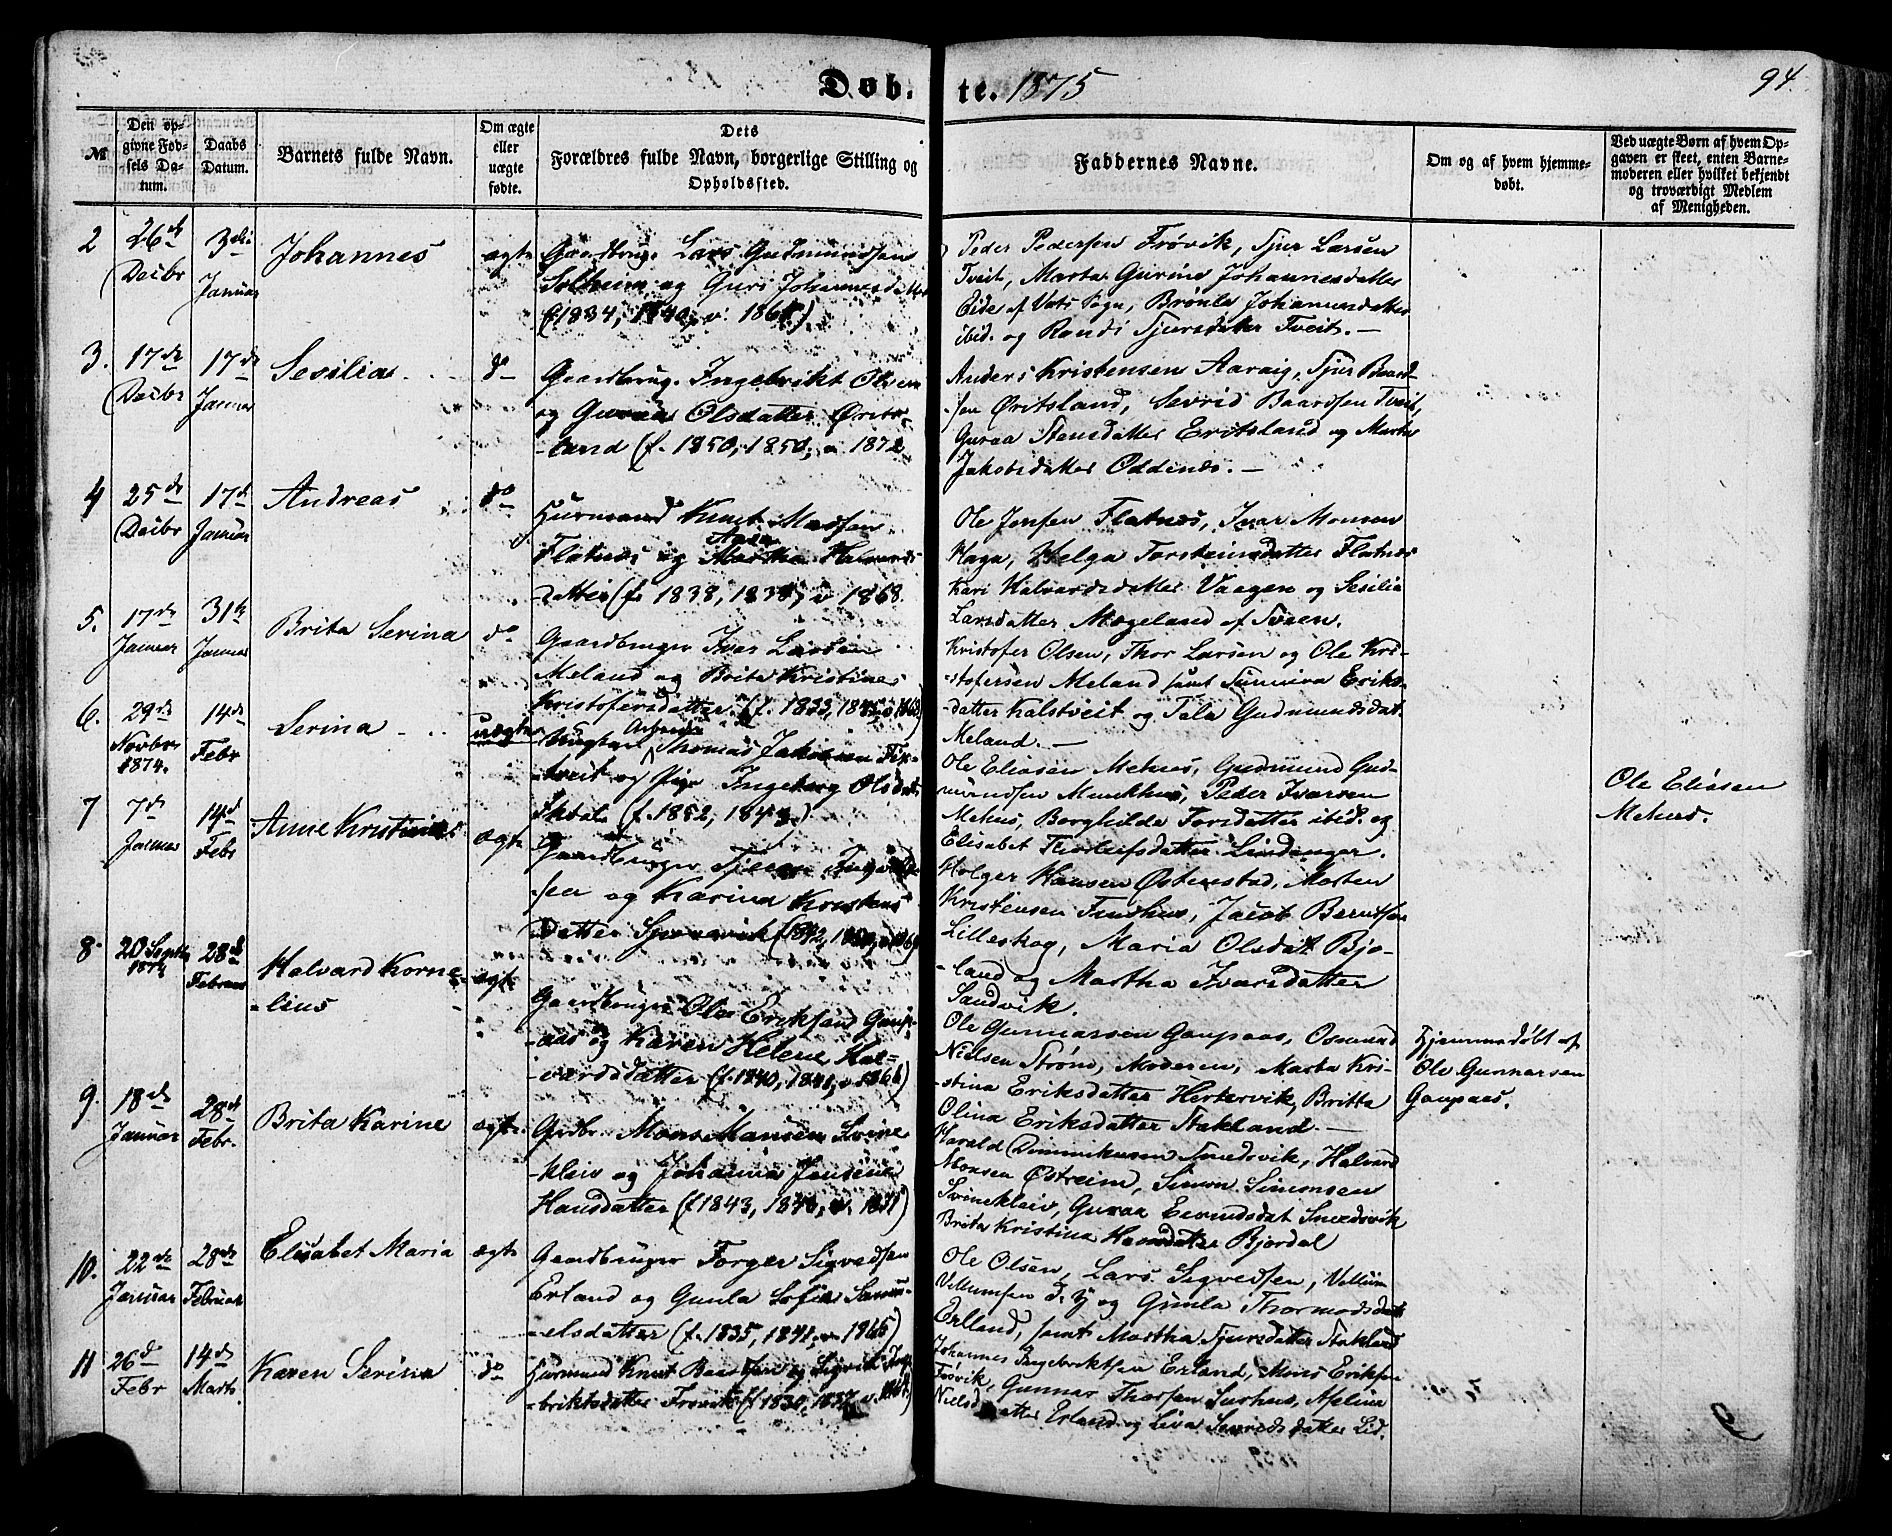 Døb-te. 1875
94
№
Den op-
givne Fød-
sels Da-
tum.
Daabs
Datum.
Barnets fulde Navn.
Om ægte
eller
uægte
fødte.
Dets
Forældres fulde Navn, borgerlige Stilling og
Opholdssted.
Faddernes Navne.
Om og af hvem hjemme-
døbt.
Ved uægte Børn af hvem Op-
gaven er skeet, enten Barne-
moderen eller hvilket bekjendt
og troværdigt Medlem
af Menigheden.
2
26de
Decbr
3die
Januar
Johannes
ægte
Gaardbrug. Lars Gudmundsen
Solheim og Guri Johannesdatter
(f. 1834, 1840, v. )
Peder Pedersen Frøvik, Sjur Larsen
Tveit, Marta Gurine Johannesdatter
Eide af Vats Sogn, Brønla
ibid. og Randi Sjursdatter Tveit. —
3.
17de
Decbr
17de
Januar
Sesilia
do
Gaardbrug. Ingebrikt Olsen
og Guraa Olsdatter Örits-
-land (f. 1850, 1850, v. 1872
Anders Kristensen Aarvig, Sjur Baard-
-sen Øritsland, Sevrid Baardsen Tveit,
Guraa Stensdatter Eritsland og Marta
Jakobsdatter Oddenes. —
4
25de
Decbr
17de
Januar
Andreas
do
Huusmand Knut
Flatnes og Martha
-datter (f. 1838, 1838, v. 1868.
Ole Jensen Flatnes, Ivar Monsen
Haga, Helga Torsteinsdatter Flatnes
Kari Halvardsdatter Vaagen og Sesilia
Larsdatter Mægeland af Sveen.
5.
17de
Januar
31te
Januar
Brita Serina
do
Gaardbruger Ivar Larsen
Meland og Brita Kristine
Kristofersdatter. (f. 1833, 1845,
Kristofer Olsen, Thor Larsen og Ole Kri-
-stofersen Meland samt Sunniva Eriks-
-datter Kalstveit og Tala Gudmundsdat.
Meland. —
6.
29de
Novbr
1874.
14de
Febr
Serina
uægte
Ungkar Thomas Jakobsen
-tveit og Pige Ingeborg Olsdat.
(f. 1852, )
Ole Eliasen Mehus, Gudmund Gud-
mundsen Munkhus, Peder Ivarsen
Mehus, Borghilda ibid. og
Elisabet Lindanger.
Ole Eliasen
Mehus.
7
7de
Januar
14de
Febr
Anne Kristine
ægte
Gaardbruger
-sen og Karina Kristens
datter
Holger Hansen Østenstad, Morten
Kristensen Jacob Berntsen
Lilleskog, Maria Olsdat Bjo-
-land og Martha Ivarsdatter
Sandvik.
8
20 Septbr
1874
28de
Februar
Halvard Korne-
-lius
ægte
Gaardbruger Ole Eriksen Gaup-
-aas og Karen Helene Hal-
vardsdatter (f. 1840, 1841, v. 1866)
Ole Gunnarsen Gaupaas, Osmund
Nielsen Strøm, Moderen, Marta Kri-
-stina Eriksdatter Hertervik, Britta
Olina Eriksdatter Stakland. —
Hjemmedøbt af
Ole Gunnarsen
Gaupaas.
9.
18de
Januar
28de
Febr.
Brita Karine
ægte
Grdbr. Mons Monsen Svine-
-kleiv og Johanna
Hansdatter (f. 1843, 1840, v. 1871)
Harald Dominikusen Smedsvik, Halvard
Monsen Østreim, Simon Simonsen
Svinekleiv, Guraa Smedsvik
Brita Kristina Hansdatter Bjordal
10.
22de
Januar
28de
Februar
Elisabet Maria
ægte
Gaardbruger Torger Sigvedsen
Erland og Gunla Sofie Samu-
-elsdatter (f. 1835, 1841, v. 1865)
Ole Olsen, Lars Sigvedsen, Vellum
Vellumsen d.y og Gunla Thormodsdat
Erland, samt Martha Sjursdatter Stakland
11
26de
Febr
14de
Marts
Karen Serina
do
Huusmand Knut Baardsen og Sigvil Inge-
-briktsdatter Frøvik (f. 1830, 1837, v. )
Johannes Ingebriktsen Erland, Mons Eriksen
Frøvik, Gunnar Thorsen Surhus, Aplina
Nielsdatter Erland og Liva Sevridsdatter Lid.